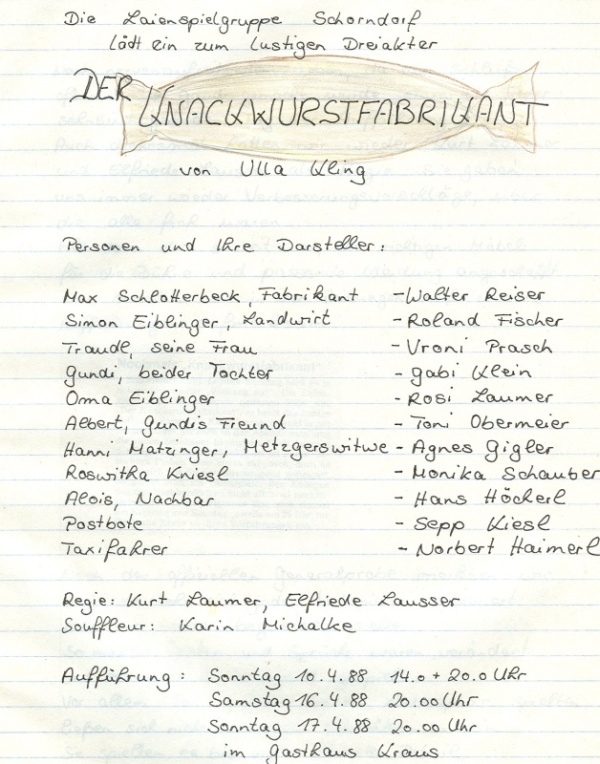 Die Laienspielgruppe Schorndorf
lädt ein zum lustigen Dreiakter
DER KNACKWURSTFABRIKANT
von Ulla Kling
Personen und Ihre Darsteller:
Max Schlotterbeck, Fabrikant - Walter Reiser
Simon Eiblinger, Landwirt - Roland Fischer
Traudl, seine Frau - Vroni Prasch
Gundi, beider Tochter - Gabi Klein
Oma Eiblinger - Rosi Laumer
Albert, Gundis Freund - Toni Obermeier
Hanni Matzinger, Metzgerswitwe - Agnes Gigler
Roswitha Kniesl - Monika Schauber
Alois, Nachbar - Hans Höcherl
Postbote - Sepp Kiesl
Taxifahrer - Norbert Haimerl
Regie: Kurt Laumer, Elfriede Lausser
Souffleur: Karin Michalke
Aufführung: Sonntag 10.4.88 14.0 + 20.0 Uhr
Samstag 16.4.88 20.00 Uhr
Sonntag 17.4.88 20.00 Uhr
im Gasthaus Kraus